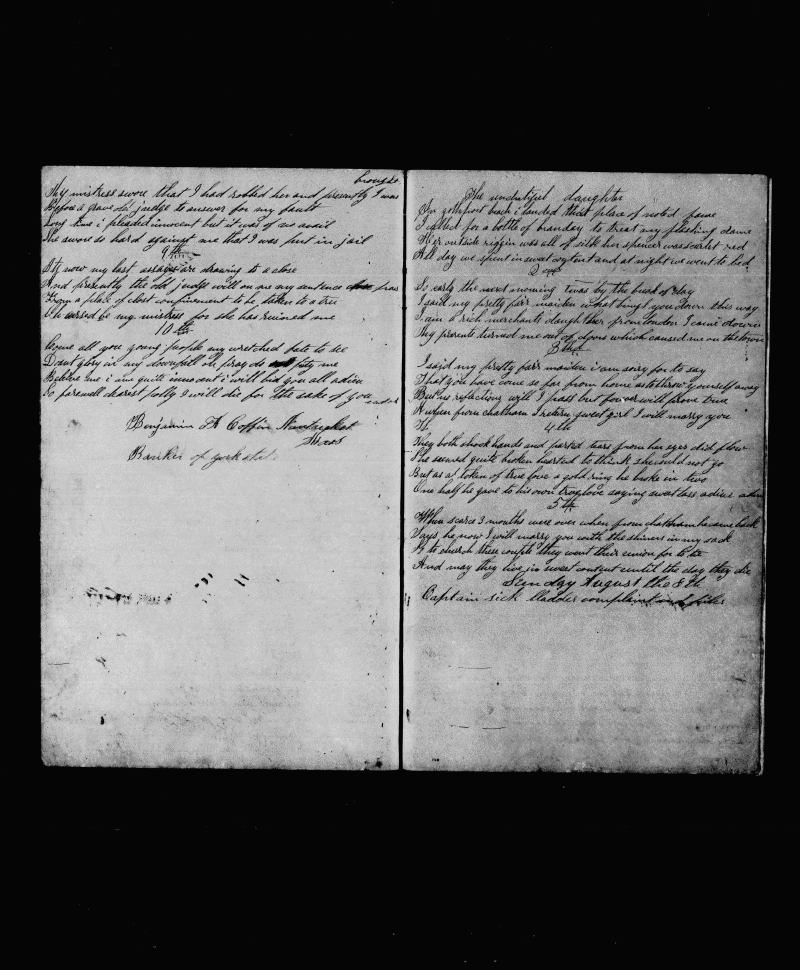 brought
My mistress swore that I had robbed her and presently I was
Before a grave old judge to answer for my fault
Long time i pleaded innocent but it was of no avail
She swore so hard against me that I was put in jail
9th
Its now my last assages are drawing to a close
And presently the old judge will on me my sentence pass
From a place of close confinement to be taken to a tree
Oh cursed be my mistress for she has ruined me
10th
Come all you young people my wretched fate to see
Dont glory in my downfall oh pray do pity me
Believe me i ime quite innocent i will bid you all adieu
So farewell dearest polly I will die for the sake of you
ended
Benjamin Coffin Nantucket
Mass
Banker of york state
The undutiful daughter
In gosport beach i landed that place of noted fame
I called for a bottle of branday to treat my flashing dame
Her outside riggin was all of silk her spencer was scarlet red
All day we spent in sweet content and at night we went to bed
2
So early the next morning twas by the break of day
I said my pretty fair maiden what brings you down this way
I am a rich merchants daughther from london I came down
My parents turned me out of doors which caused me on the town
3
I said my pretty fair maiden i am sorry for to say
That you have come so far from home as to throw yourself away
But no reflections will I pass but forever will prove true
And when from chatham I return sweet girl I will marry you
4th
They both shook hands and parted tears from her eyes did flow
She seemed quite broken hearted to think she could not go
But as a token of true love a gold ring he broke in two
One half he gave to his own true love saying sweet lass adieu adieu
5th
When scarce 3 months were over when from chatham he came back
Says he now I will marry you with the shiners in my sack
to church these couple they went their union for to tie
And may they live in sweet content until the day they die
Sunday August the 8th
Captain sick bladder complaint and piles